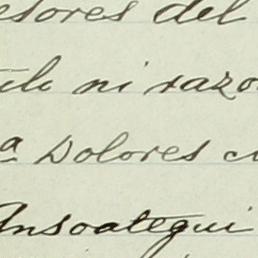 esores del
tili ni razo
ª Dolores c
Ansoategui